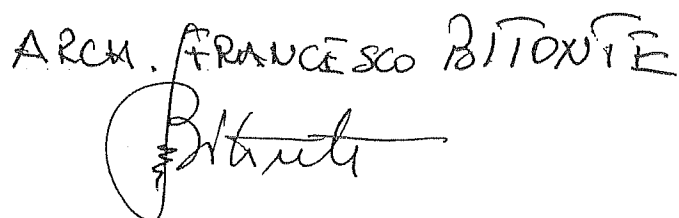 ARCH. FRANCESCO BITONTE
Bitonte